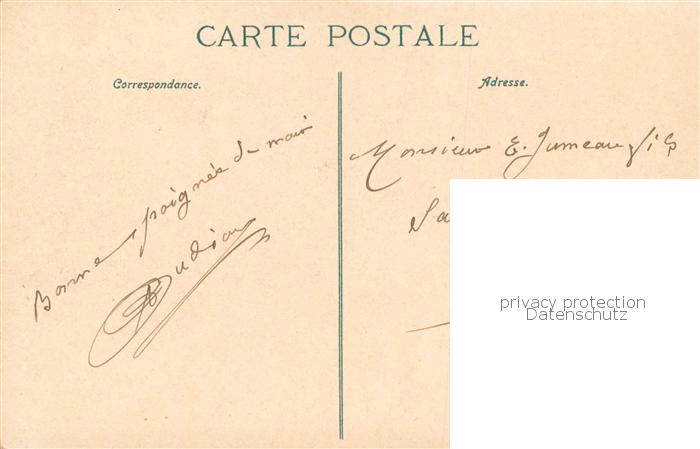 CARTE POSTALE
Correspondance.
Bonne poignée de main
Adresse.
Monsieur E. Jumeau fils
privacy protection
Datenschutz